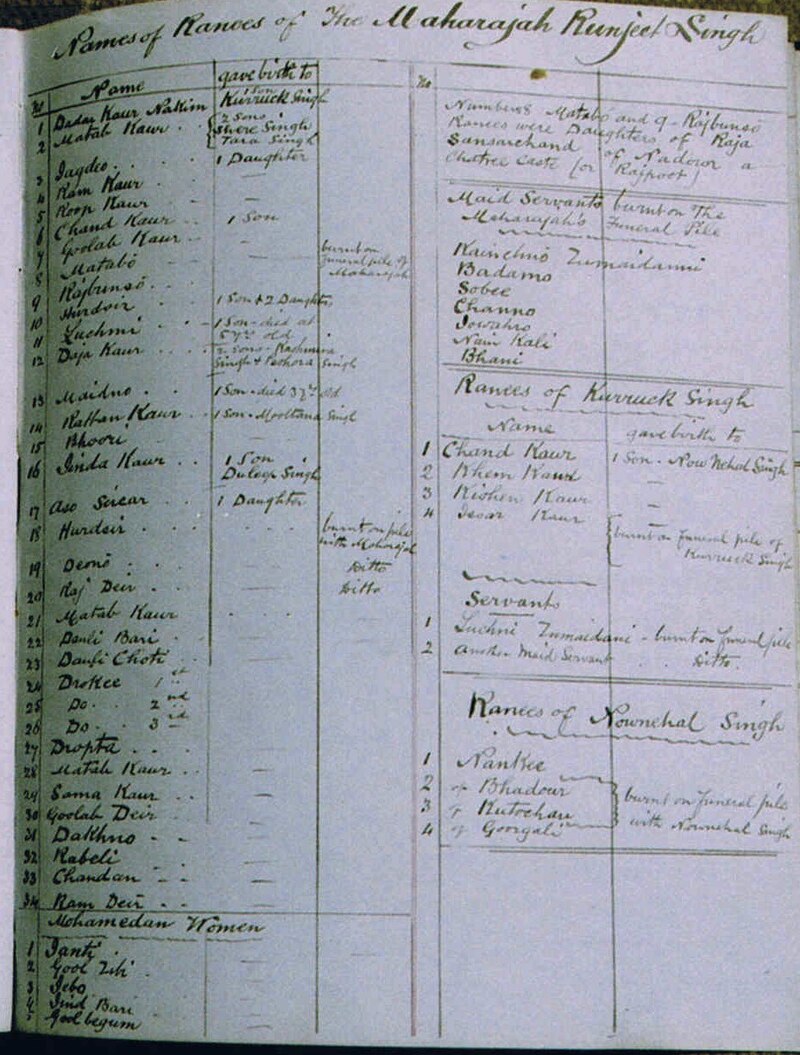 Names of Ranees of The Maharajah Runjeet Singh
No Name gave birth to
1 Daday Kaur Nakim Kurruck Singh son
2 Matab Kaur . . 2 Sons Shere Singh Tara Singh
3 Jagdeo . . . 1 Daughter
4 Ram Kaur —
5 Roop Kaur —
6 Chand Kaur . . 1 Son
7 Goolab Kaur . . —
8 Matabo — burnt on Funeral pile of Maharajah
9 Rajbunso . . —
10 Hurdoir . . 1 Son & 2 Daughters
11 Luchmi . . . 1 Son - died at 5 yrs old
12 Daja Kaur . . 2 sons - Kashmira Singh & Peshora Singh
13 Maidno . . 1 Son - died 3 yrs old
14 Rattan Kaur . . 1 Son - Mooltana Singh
15 Bhoori . . —
16 Jinda Kaur . . 1 Son Duleep Singh
17 Aso Sircar . . 1 Daughter
18 Hurdeir . . . . . burnt on pile with Maharajah
19 Deono . . . . . Ditto
20 Raj Deir . . . . . Ditto
21 Matab Kaur . . .
22 Dauli Bari . —
23 Dauli Choti —
24 Drokee 1st —
25 Do . . 2nd —
26 Do . . 3rd —
27 Dropta . . . —
28 Matab Kaur . . —
29 Sama Kaur . . —
30 Goolab Deir . . —
31 Dakhno - - —
32 Rabeli —
33 Chandan - - —
34 Ram Deir . . —
Mohamedan Women
1 Janti . —
2 Gool . —
3 Jebo —
4 Jind Bari —
5 Goolbegum —
No
Numbers 8 Matabo and 9 - Rajbunso
Ranees were Daughters of Raja
Sansarchand of Nadour a
Chatree Caste (or Rajpoot)
Maid Servants burnt on The
Maharajah's Funeral Pile
Kainchno Zumaidanni
Badamo
Sobee
Channo
Jowahro
Nain Kali
Bhani
Ranees of Kurruck Singh
Name gave birth to
1 Chand Kaur 1 Son - Now Nehal Singh
2 Khem Kaur —
3 Kishen Kaur —
4 Isar Kaur burnt on funeral pile of Kurruck Singh
Servants
1 Luchni Zumaidani - burnt on funeral pile
2 another Maid Servant . . Ditto.
Ranees of Nownehal Singh
1 Nankee
2 of Bhadour
3 of Kutochan
4 of Goorgali
burnt on Funeral pile
with Nownehal Singh